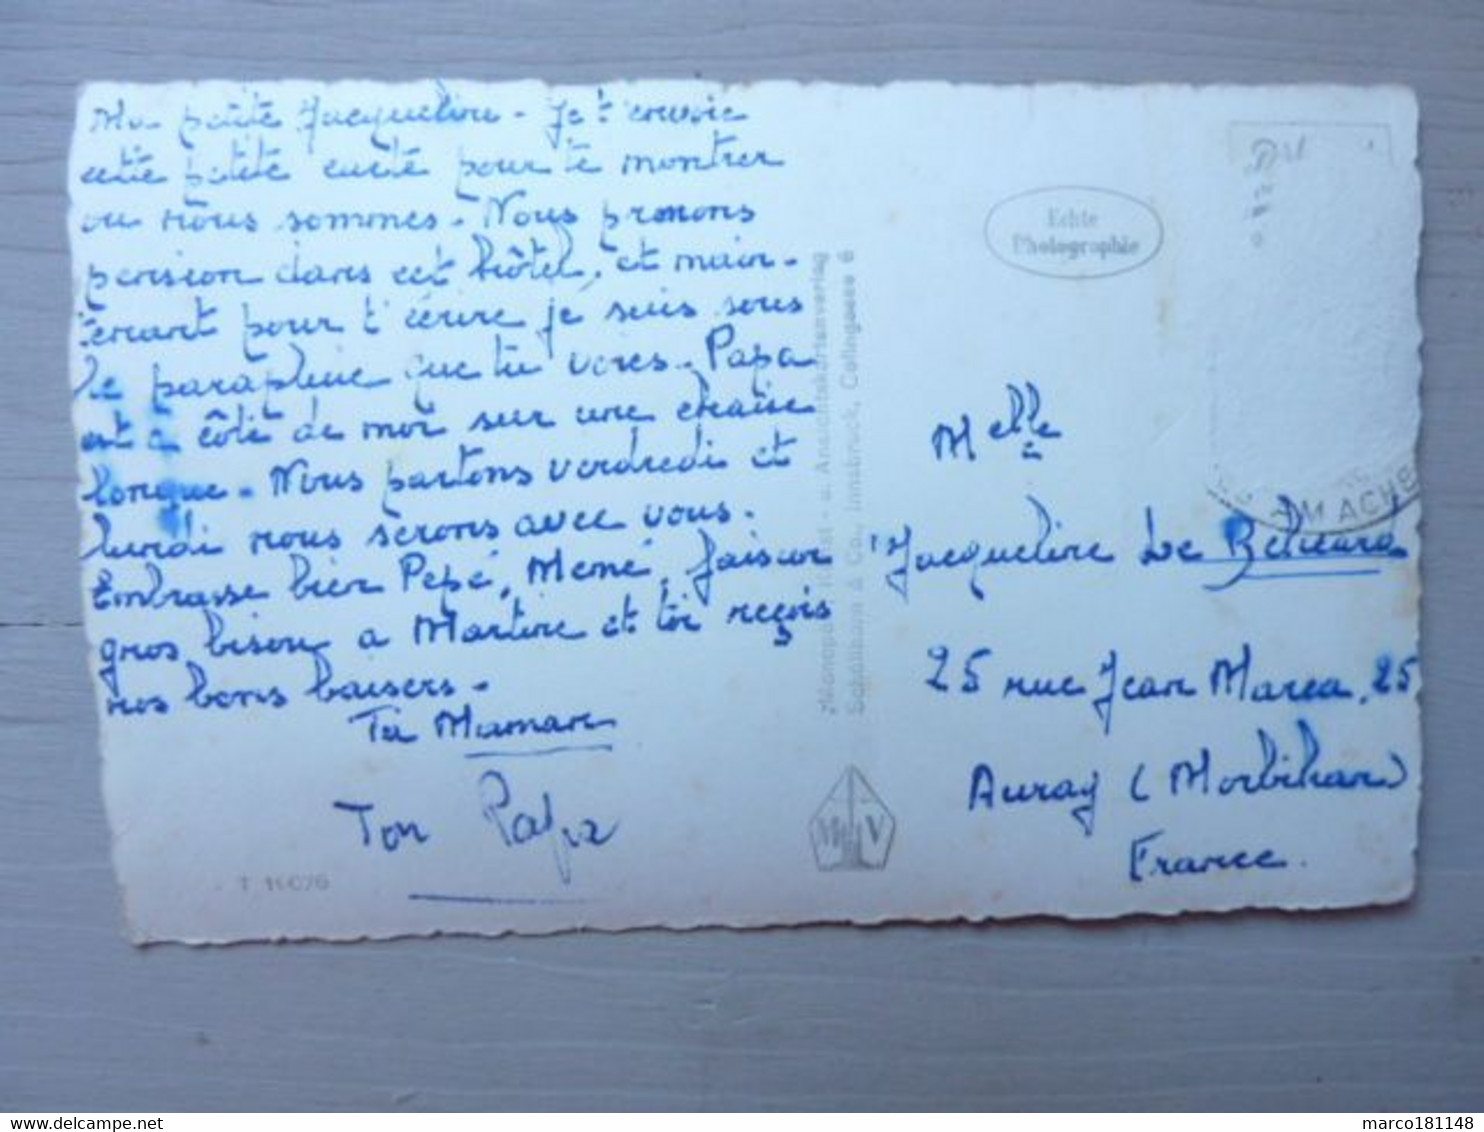 Ma petite Jacqueline - Je t'envoie
cette petite carte pour te montrer
ou nous sommes. Nous prenons
pension dans cet hôtel, et main-
tenant pour t'écrire je suis sous
le parapluie que tu vores. Papa
est à côté de moi sur une chaise
longue. Nous partons vendredi et
lundi nous serons avec vous.
Embrasse bien Pépé, Mémé, fais un
gros bisou a Martine et toi reçois
nos bons baisers -
Ta Maman
Ton Papa
T 11676
Monopol Kunst- u. Ansichtskartenverlag
Schöllhorn & Co., Innsbruck, Colingasse 6
M V
Echte
Photographie
AM ACHE
Melle
Jacqueline Le
25 rue Jean Marea, 25
Auray (Morbihan)
France.
marco181148